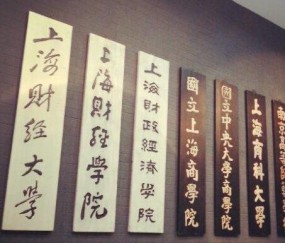 上海財經大學
上海財經學院
上海財政經濟學院
國立上海商學院
國立中央大學商學院
上海商科大學
南京高等